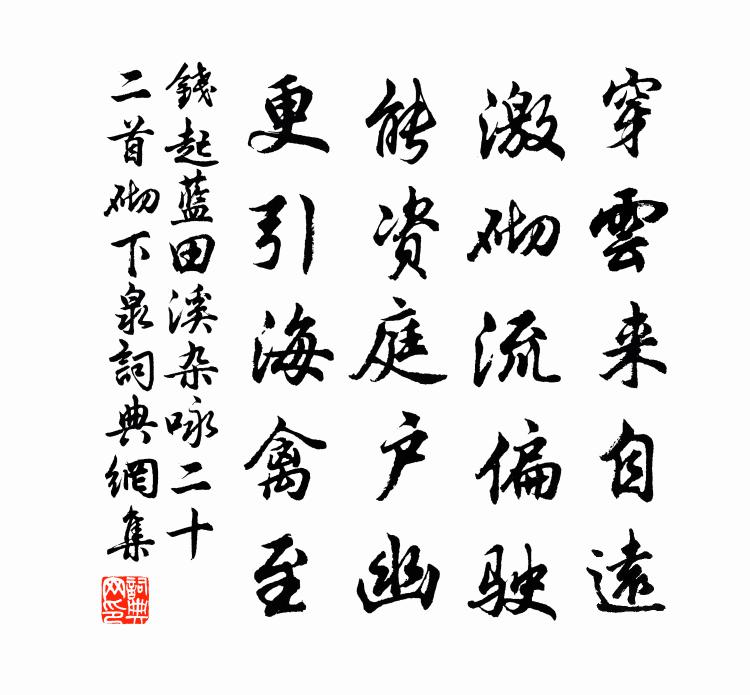 穿雲来自遠
激砌流偏駛
能资庭户幽
更引海禽至
錢起藍田溪杂咏二十
二首砌下泉詞典網集
詞典
网印